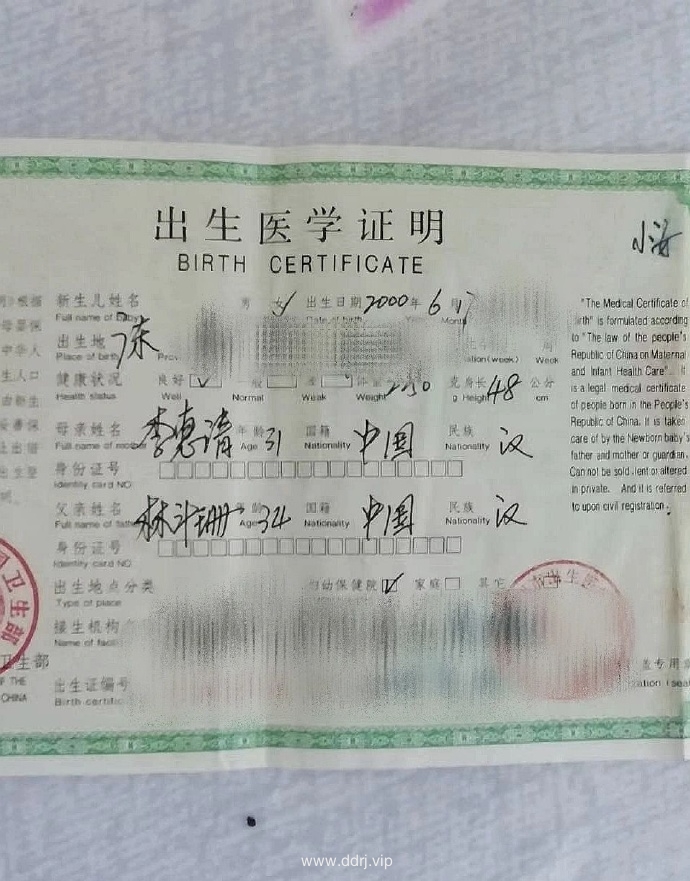 出生医学证明
BIRTH CERTIFICATE
小海
新生儿姓名 男 女√ 出生日期2000年6月
Full name of baby Date of birth Year Month
出生地 广东
Place of birth Prov
ation(week) Week
健康状况 良好√ 一般 差 体重 克 身长48公分
Health status Well Normal Weak Weight g Height cm
母亲姓名 李惠清 年龄31 国籍 中国 民族 汉
Full name of mother Age Nationality Nationality
身份证号
Identity card NO
父亲姓名 林 珊 年龄34 国籍 中国 民族 汉
Full name of father Age Nationality Nationality
身份证号
Identity card NO
出生地点分类 妇幼保健院√ 家庭 其它
Type of place
接生机构
Name of facil
出生证编号
Birth certific
"The Medical Certificate of
irth" is formulated according
to "The law of the people's
Republic of China on Maternal
and Infant Health Care". It
is a legal medical certificate
of people born in the People's
Republic of China. It is taken
care of by the Newborn baby's
father and mother or guardian.
Cannot be sold, lent or altered
in private. And it is referred
to upon civil registration.
根据
母婴保
中华人
生人口
由新生
妥善保
出生登
卫生部
卫生部
F THE
CHINA
盖专用章
ization (seal
www.ddrj.vip